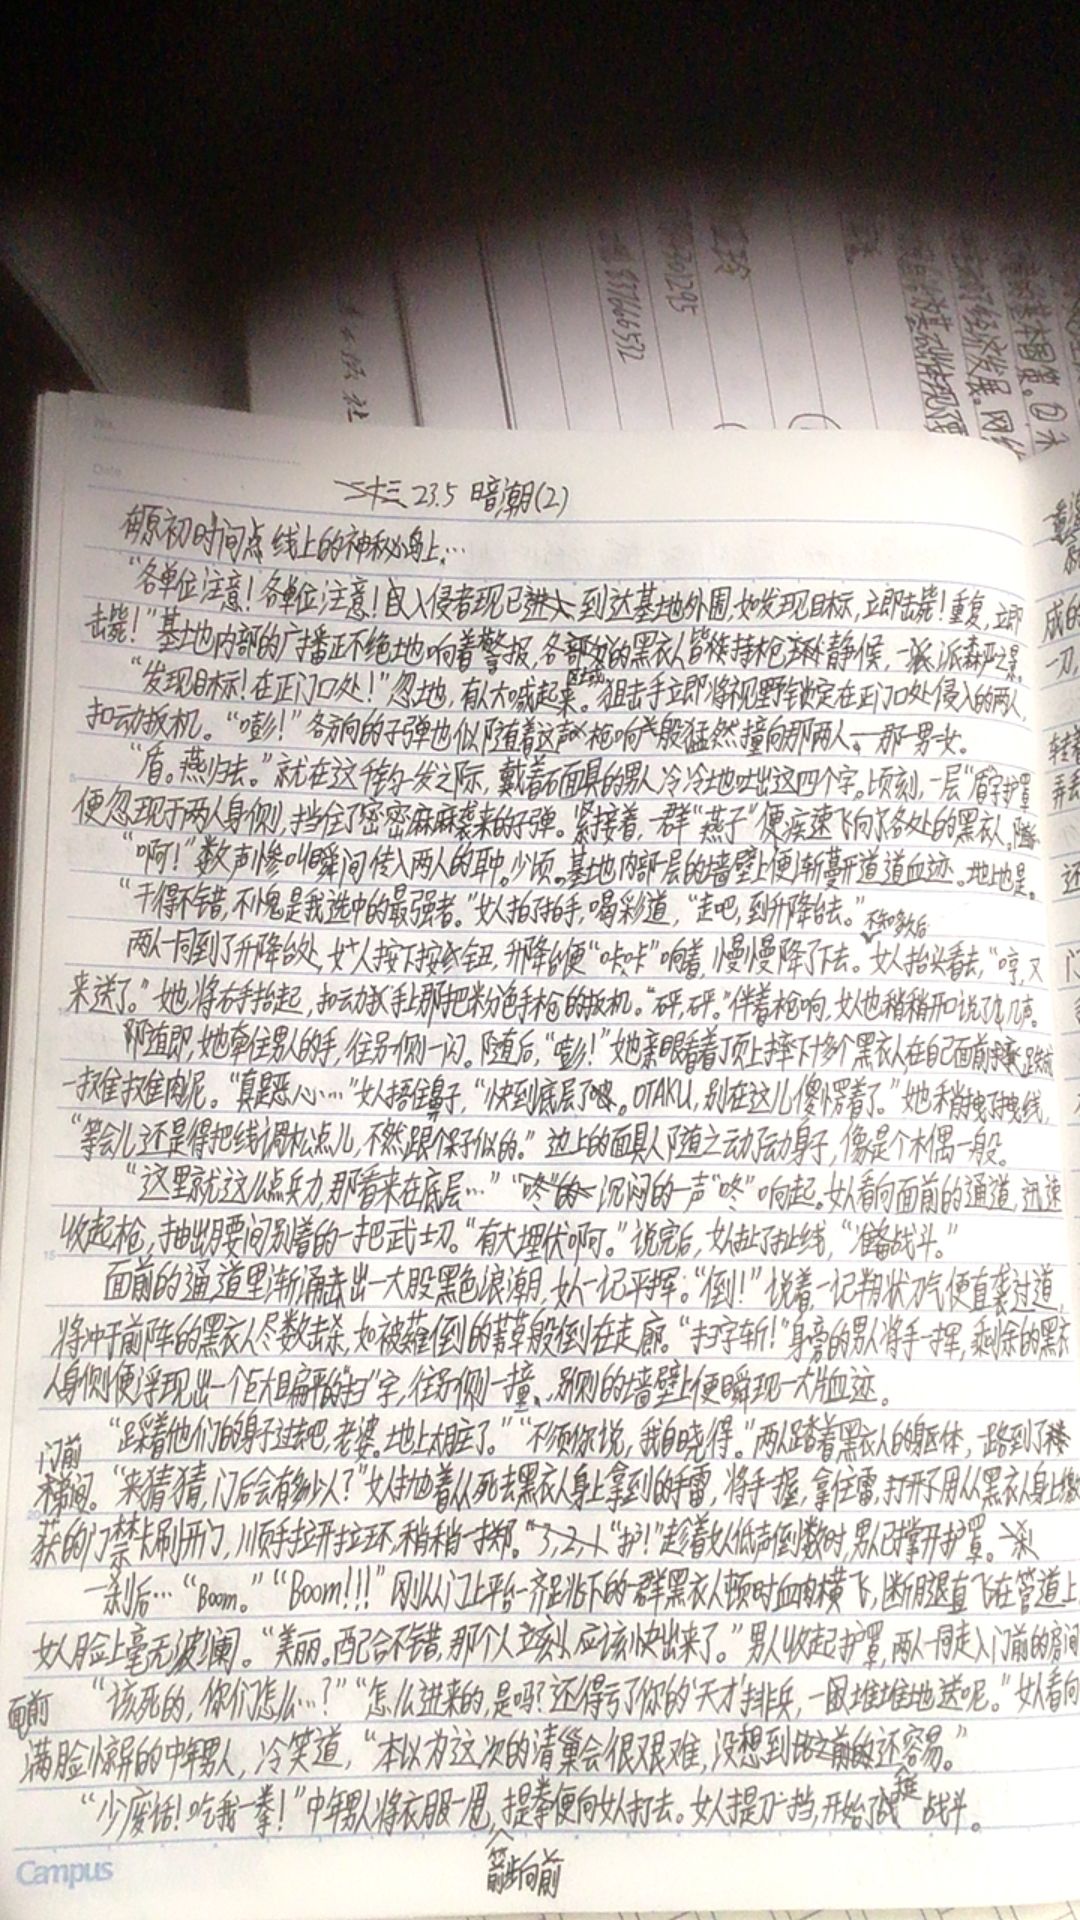 23.5 暗潮(2)
在原初时间点线上的神秘小岛上…
“各单位注意！各单位注意！入侵者现已到达基地外围，如发现目标，立即击毙！重复，立即
击毙！”基地内部的广播正不绝地响着警报，各部的黑衣人皆持枪静候，一派森严之景。
“发现目标！在正门口处！”忽地，有人大喊起来。狙击手立即将视野锁定在正门口处侵入的两人，
扣动扳机。“嘭！”各方向的子弹也似随着这声枪响般猛然撞向那两人，一男一女。
“盾。燕归去。”就在这千钧一发之际，戴着石面具的男人冷冷地吐出这四个字。顷刻，一层“盾”字护罩
便忽现于两人身侧，挡住了密密麻麻袭来的子弹。紧接着，一群“燕子”便疾速飞向了各处的黑衣人。随
“啊！”数声惨叫瞬间传入两人的耳中。少顷。基地内部一层的墙壁上便渐蔓开道道血迹。地上也是。
“干得不错，不愧是我选中的最强者。”女人拍了拍手，喝彩道，“走吧，到升降台去。”
不知多久后
两人一同到了升降台处，女人按下按钮，升降台便“咔咔”响着，慢慢降了下去。女人抬头看去，“哼，又
来送了。”她将右手抬起，扣动手上那把粉色手枪的扳机。“砰，砰。”伴着枪响，女人也稍稍开口说了几声。
随即，她牵住男人的手，往另一侧一闪。随后，“嘭！”她亲眼看着顶上摔下十多个黑衣人，在自己面前
一摊摊肉泥。“真是恶心…”女人捂住鼻子，“快到底层了。OTAKU，别在这儿傻愣着了。”她稍拽了拽线，
“等会儿还是得把线调松点儿，不然跟个呆子似的。”边上的面具人随之动了动身子，像是个木偶一般。
“这里就这么点兵力，那看来在底层…”沉闷的一声“咚”响起。女人看向面前的通道，迅速
收起枪，抽出腰间别着的一把武士刀。“有大埋伏啊。”说完后，女人扯了扯线，“准备战斗。”
面前的通道里渐涌出一大股黑色浪潮，女人一记平挥：“倒！”说着，一记月牙状刀气便直袭过道，
将冲于前阵的黑衣人尽数击杀，如被薙倒的苇草般倒在走廊。“扫字斩！”身旁的男人将手一挥，剩余的黑衣
人身侧便浮现出一个巨大且扁平的“扫”字，往另一侧一撞，别侧的墙壁上便瞬现一大片血迹。
“踩着他们的身子过去吧，老婆。地上太脏了。”“不须你说，我自晓得。”两人踏着黑衣人的躯体，一路到了
门前
。“来猜猜，门后会有多少人？”女人抛着从死去黑衣人身上拿到的手雷，将手一握，拿住雷，打开了用从黑衣人身上缴
获的门禁卡刷开门，顺手拉开拉环，稍稍一掷。“3，2，1”“护！”趁着女人低声倒数时，男人已撑开护罩。
一刹后…“Boom。”“Boom！！！”刚从门上平台一齐跳下的一群黑衣人顿时血肉横飞，断腿直飞在管道上
女人脸上毫无波澜。“美丽。配合不错，那个人立刻应该快出来了。”男人收起护罩，两人一同走入门前的房间
“该死的，你们怎么…？”“怎么进来的，是吗？还得亏了你的‘天才’排兵，一堆堆地送呢。”女人看向
面前
满脸惊异的中年男人，冷笑道，“本以为这次的清巢会很艰难，没想到还挺容易。”
“少废话！吃我一拳！”中年男人将衣服一甩，箭步向前提拳便向女人打去。女人提刀一挡，开始了战斗。
Campus